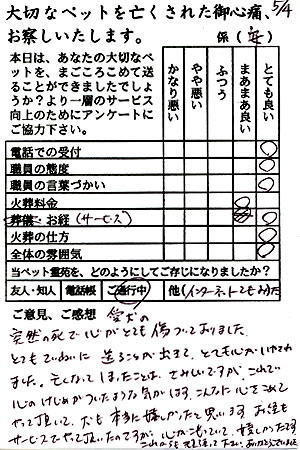 大切なペットを亡くされた御心痛、 5/4
お察しいたします。 係( )
本日は、あなたの大切なペッ
トを、まごころこめて送る
ことができましたでしょ
うか?より一層のサービス
向上のためにアンケートに
ご協力下さい。
かなり悪い やや悪い ふつう まあまあ良い とても良い
電話での受付 ○
職員の態度 ○
職員の言葉づかい ○
火葬料金
葬儀・お経(サービス) ○
火葬の仕方 ○
全体の雰囲気 ○
当ペット霊苑を、どのようにしてご存じになりましたか?
友人・知人 電話帳 ご通行中 他(インターネットでもみた
ご意見、ご感想 愛犬の
突然の死で心がとても傷ついておりました。
とてもていねいに送ることが出来て、とても心がいやされ
ました。亡くなってしまったことは、さみしいですが、これで
心のけじめがついたような気がします。こんなに心をこめて
やって頂いて、犬も本当に嬉しかったと思います。お経も
サービスでやって頂いたのですが、心がこもっていて、嬉しかったです
これからも 下さい。ありがとうございました